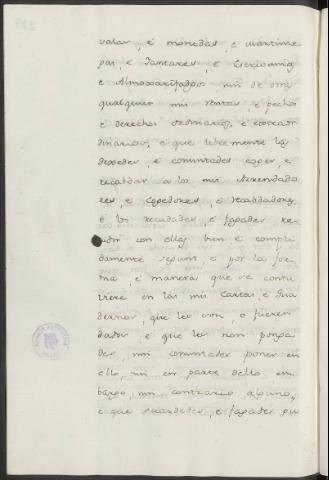 valas, é monedas, e martinie
gas, e Yantares, e Escrivanias
e Almoxarifadgos, nin de otras
qualquier mis rentas, e pechos
e derechos ordinarios, e extraor
dinarios, é que libremente los
dexedes, e consintades coger, e
recabdar a los mis Arrendado
res, e cogedores, e recabdadores,
e los recudades, e fagades re
cudir con ellas bien e compli
damente segunt e por la for
ma, e manera que se contu
viere en las mis cartas, e Qua
dernos, que les son, o fueren
dados, e que les non ponga
des, nin consintades poner en
ello, nin en parte dello em
bargo, nin contrario alguno,
e que guardedes, e fagades gu